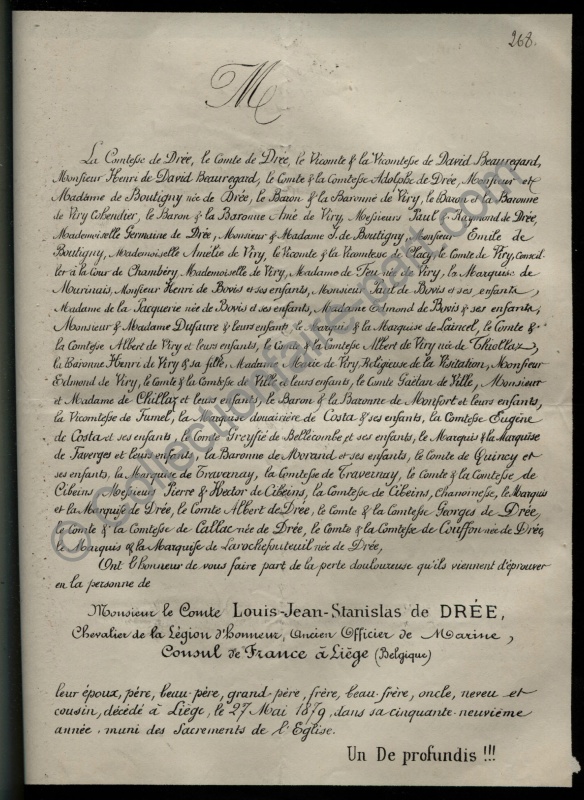 268.
M
La Comtesse de Drée, le Comte de Drée, le Vicomte & la Vicomtesse de David Beauregard,
Monsieur Henri de David Beauregard, le Comte & la Comtesse Adolphe de Drée, Monsieur et
Madame de Boutigny née de Drée, le Baron & la Baronne de Viry, le Baron et la Baronne
de Viry Cohendier, le Baron & la Baronne Amé de Viry, Messieurs Paul & Raymond de Drée,
Mademoiselle Germaine de Drée, Monsieur & Madame J. de Boutigny, Monsieur Emile de
Boutigny, Mademoiselle Amélie de Viry, le Vicomte & la Vicomtesse de Clacy, le Comte de Viry, Conseil-
ler à la Cour de Chambéry, Mademoiselle de Viry, Madame de Feu née de Viry, le Marquis de
Murinais, Monsieur Henri de Bovis et ses enfants, Monsieur Paul de Bovis et ses enfants,
Madame de la Pacquerie née de Bovis et ses enfants, Madame Edmond de Bovis & ses enfants,
Monsieur & Madame Dufaure & leurs enfants, le Marquis & la Marquise de Laincel, le Comte &
la Comtesse Albert de Viry et leurs enfants, le Comte & la Comtesse Albert de Viry née de Thiollaz,
la Baronne Henri de Viry & sa fille, Madame Marie de Viry, Religieuse de la Visitation, Monsieur
Edmond de Viry, le Comte & la Comtesse de Ville et leurs enfants, le Comte Gaëtan de Ville, Monsieur
et Madame de Chillaz et leurs enfants, le Baron & la Baronne de Monfort et leurs enfants,
la Vicomtesse de Fumel, la Marquise douairière de Costa & ses enfants, la Comtesse Eugène
de Costa et ses enfants, le Comte Greyfié de Bellecombe et ses enfants, le Marquis & la Marquise
de Faverges et leurs enfants, la Baronne de Morand et ses enfants, le Comte de Quincy et
ses enfants, la Marquise de Travanay, la Comtesse de Travernay, le Comte & la Comtesse de
Cibeins, Messieurs Pierre & Hector de Cibeins, la Comtesse de Cibeins, Chanoinesse, le Marquis
et la Marquise de Drée, le Comte Albert de Drée, le Comte & la Comtesse Georges de Drée,
le Comte & la Comtesse de Callac née de Drée, le Comte & la Comtesse de Couffon née de Drée,
le Marquis & la Marquise de Larochefonteuil née de Drée,
Ont l'honneur de vous faire part de la perte douloureuse qu'ils viennent d'éprouver
en la personne de
Monsieur le Comte Louis-Jean-Stanislas de DRÉE,
Chevalier de la Légion d'honneur, Ancien Officier de Marine,
Consul de France à Liège (Belgique)
leur époux, père, beau-père, grand-père, frère, beau-frère, oncle, neveu et
cousin, décédé à Liège, le 27 Mai 1879, dans sa cinquante-neuvième
année, muni des Sacrements de l'Eglise.
Un De profundis !!!